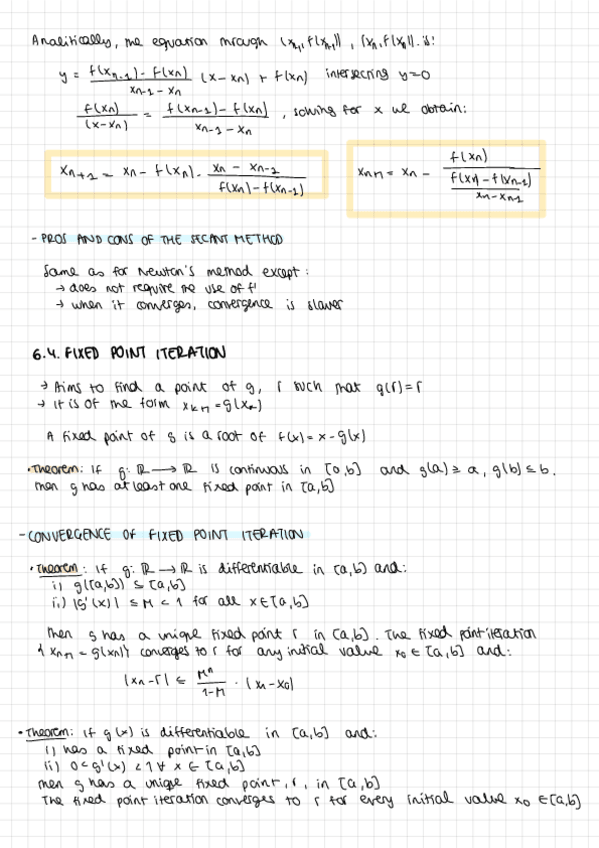 Analitically, the equation through (xn-1, f(xn-1)), (xn, f(xn)). is:
y = f(xn-1) - f(xn) / xn-1 - xn (x - xn) + f(xn) intersecting y=0
f(xn) / (x-xn) = f(xn-1) - f(xn) / xn-1 - xn , solving for x we obtain:
xn+1 = xn - f(xn) · xn - xn-1 / f(xn) - f(xn-1)
xn+1 = xn - f(xn) / f(xn) - f(xn-1) / xn - xn-1
- PROS AND CONS OF THE SECANT METHOD
Same as for Newton's method except:
→ does not require the use of f'
→ when it converges, convergence is slower
6.4. FIXED POINT ITERATION
→ Aims to find a point of g, r such that g(r)=r
→ It is of the form xk+1 = g(xn)
A fixed point of g is a root of f(x) = x - g(x)
• Theorem: If g: ℝ → ℝ is continuous in [a,b] and g(a) ≥ a, g(b) ≤ b.
then g has at least one fixed point in [a,b]
- CONVERGENCE OF FIXED POINT ITERATION
• Theorem: If g: ℝ → ℝ is differentiable in [a,b] and:
i) g([a,b]) ⊆ [a,b]
ii) |g'(x)| ≤ M < 1 for all x ∈ [a,b]
Then g has a unique fixed point r in [a,b]. The fixed point iteration
{xn+1 = g(xn)} converges to r for any initial value x0 ∈ [a,b] and:
|xn - r| ≤ Mⁿ / 1-M · |x1 - x0|
• Theorem: If g(x) is differentiable in [a,b] and:
i) has a fixed point in [a,b]
ii) 0 < g'(x) < 1 ∀ x ∈ [a,b]
then g has a unique fixed point, r, in [a,b]
The fixed point iteration converges to r for every initial value x0 ∈ [a,b]